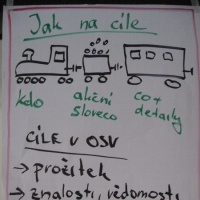 Jak na cíle
kdo akční co+
sloveso detaily
CÍLE V OSV
→ prožitek
→ znalosti, vědomosti